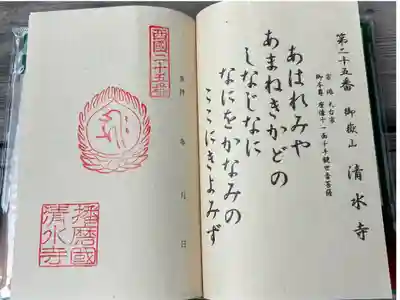 第二十五番 御嶽山 清水寺
宗派 天台宗
御本尊 座像十一面千手観世音菩薩
あはれみや
あまねきかどの
しなじなに
なにをかなみの
ここにきよみず
西國二十五番
奉拝 年 月 日
播磨國
清水寺